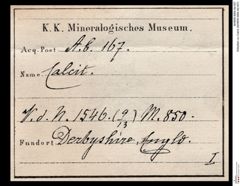 K. K. Mineralogisches Museum.
Acq. Post A.b. 167.
Name Calcit.
V. d. N. 1546. (9/13) M. 850.
Fundort Derbyshire, Anglo.
I.